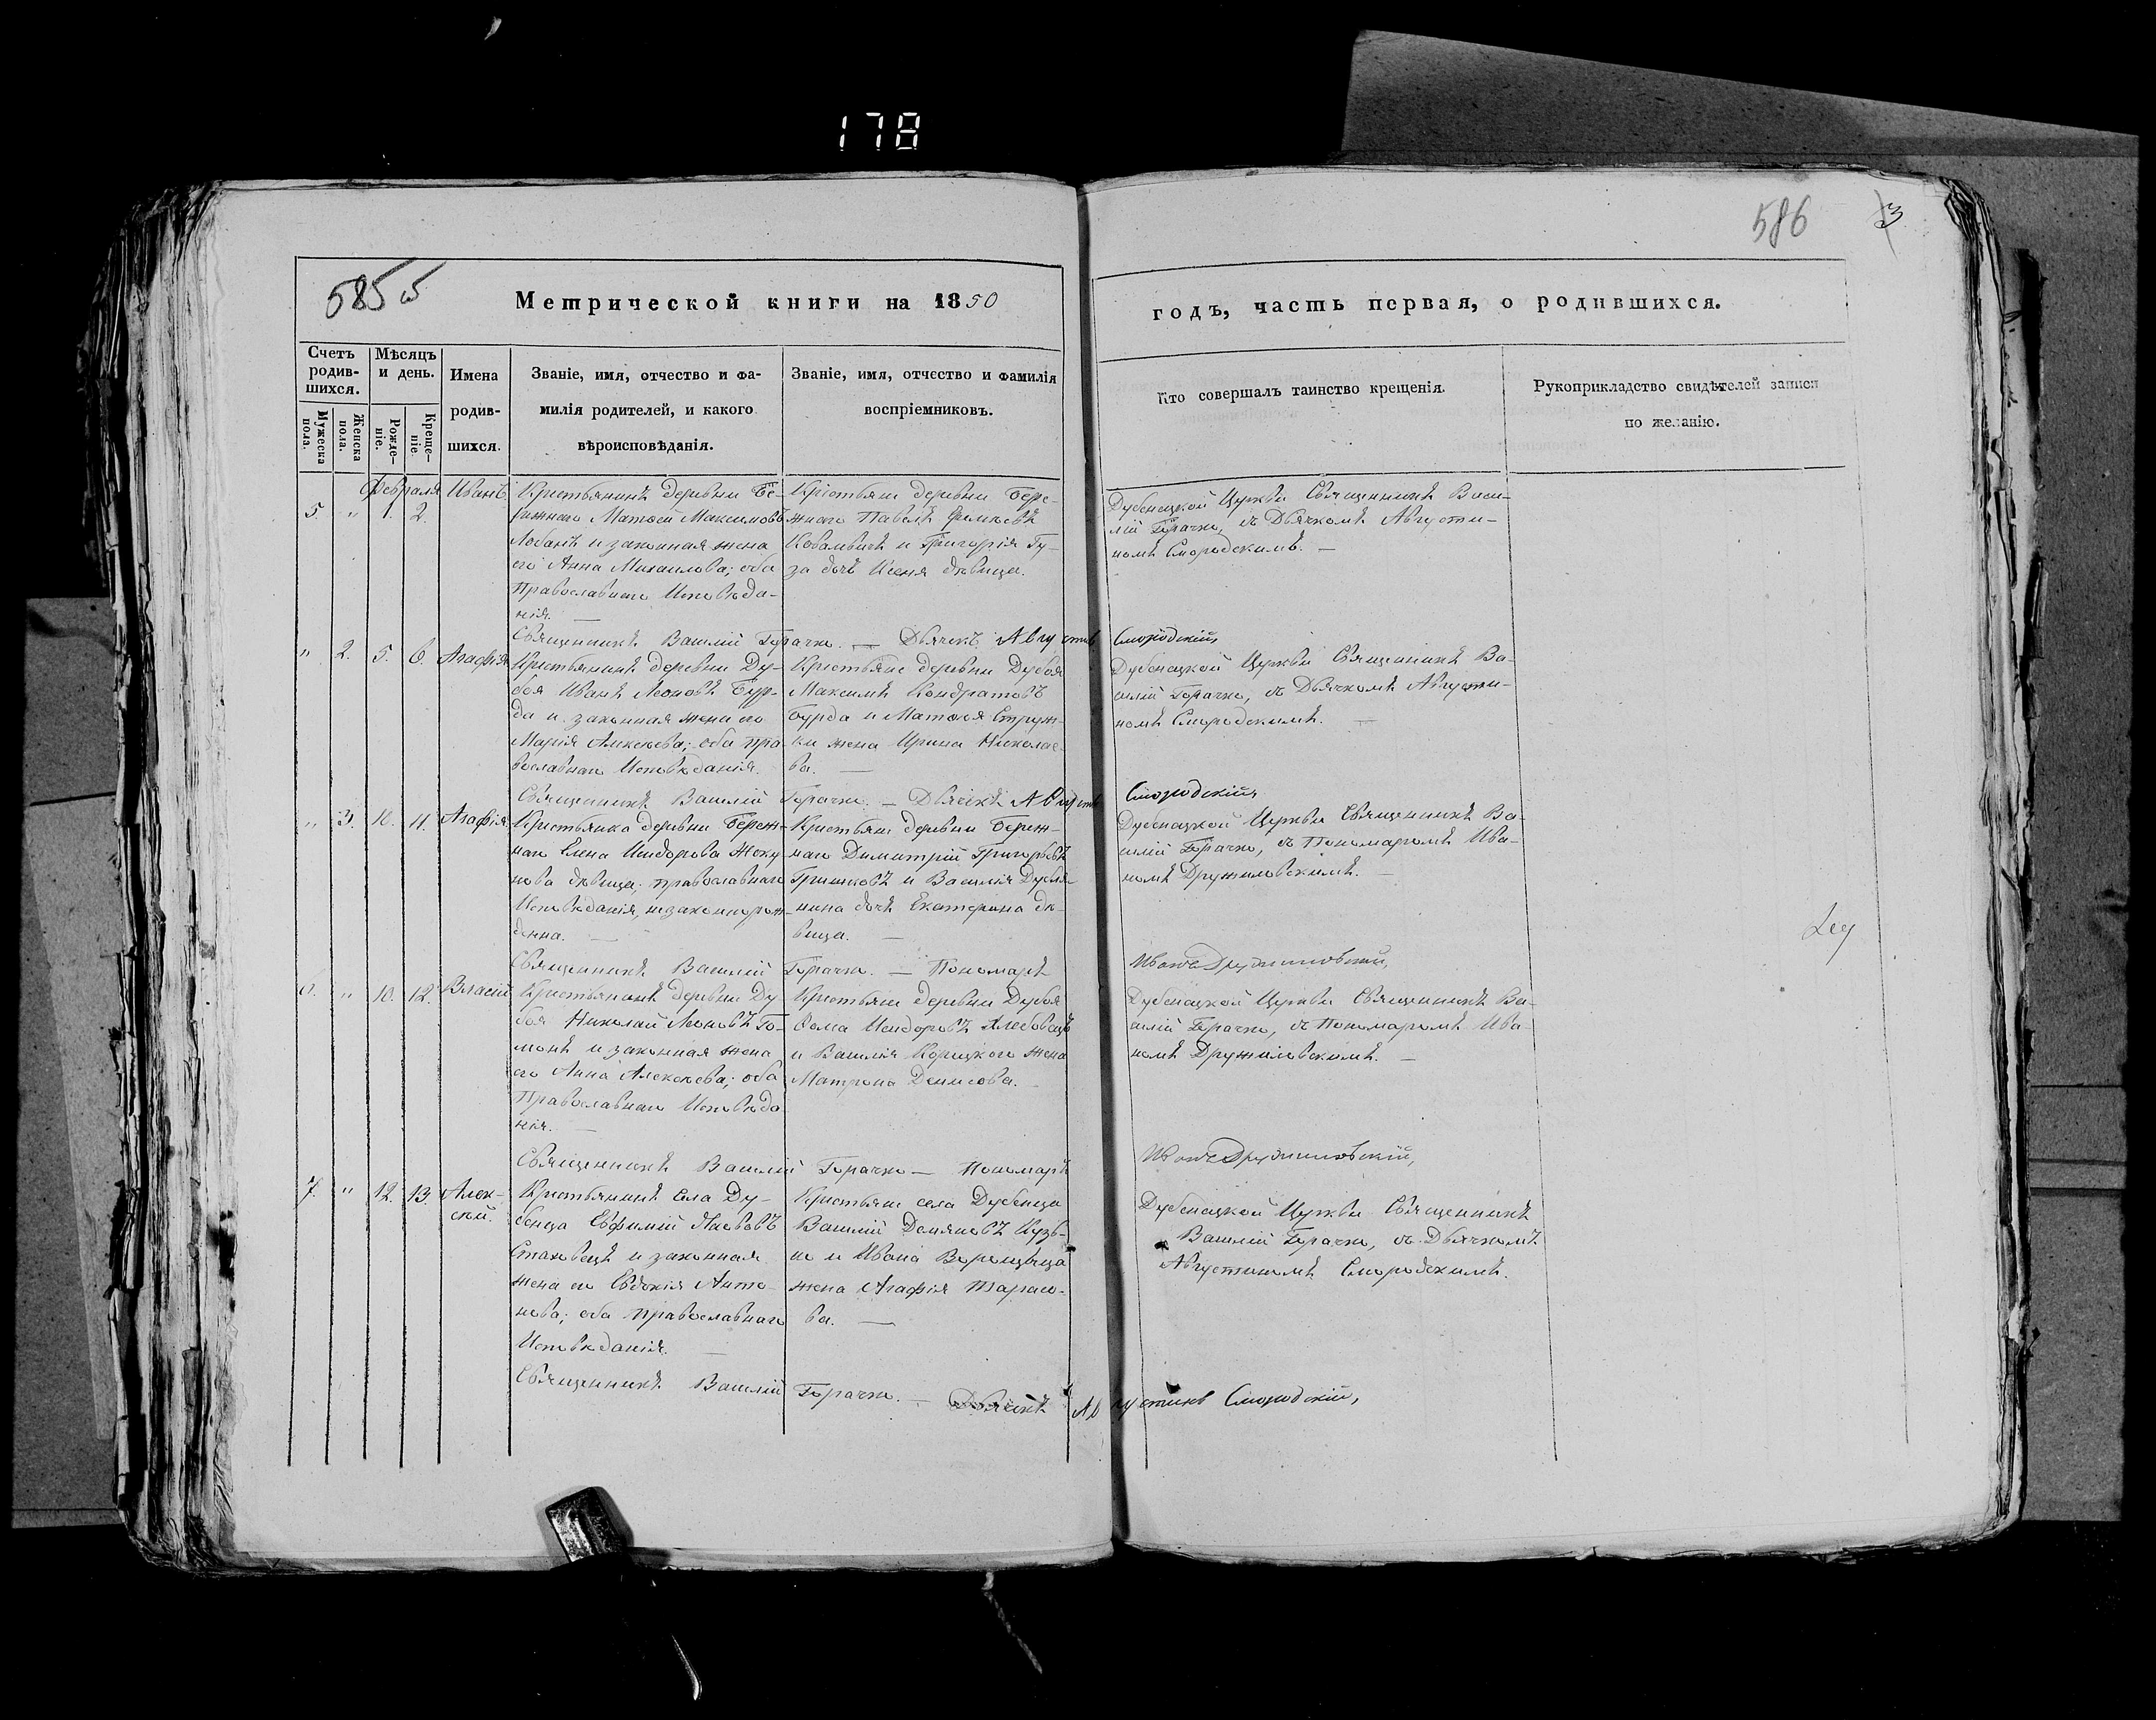 178
586
3
585 об
Метрической книги на 1850
годъ, часть первая, о родившихся.
Счетъ родив-шихся.
Мужеска пола.
Женска пола.
Мѣсяцъ и день.
Рожде-ніе.
Креще-ніе
Имена
родив-
шихся.
Званіе, имя, отчество и фа-
милія родителей, и какого
вѣроисповѣданія.
Званіе, имя, отчество и фамилія
воспріемниковъ.
Кто совершалъ таинство крещенія.
Рукоприкладство свидѣтелей записи
по желанію.
Февраля
5. " 1. 2. Иванъ
Крестьянинъ деревни Бе-
режнаго Матѳей Максимовъ
Лобанъ и законная жена
его Анна Михаилова; оба
Православнаго Исповѣда-
нія. —
Крестьяне деревни Бере-
жнаго Павелъ
Ковалевичъ и Григорія Гу-
за дочь Ксенія дѣвица.
Дубенецкой Церкви Священникъ Васи-
лій Горачко, съ Дьячкомъ Августи-
номъ Смородскимъ. —
Священникъ Василій Горачко. — Дьячекъ Августинъ Смородскій,
" 2. 5. 6. Агафія
Крестьянинъ деревни Ду-
боя Иванъ Леоновъ Бур-
да и законная жена его
Марія Алексѣева; оба пра-
вославнаго Исповѣданія.
Крестьяне деревни Дубоя
Максимъ Кондратовъ
Бурда и Матѳея Струж-
ки жена Ирина Николае-
ва. —
Дубенецкой Церкви Священникъ Ва-
силій Горачко, съ Дьячкомъ Августи-
номъ Смородскимъ. —
Священникъ Василій Горачко. — Дьячекъ Августинъ Смородскій,
" 3. 10. 11. Агафія.
Крестьянка деревни Береж-
наго Елена Исидорова Жеку-
нова дѣвица; православнаго
Исповѣданія, незаконнорож-
денна. —
Крестьяне деревни Береж-
наго Димитрій Григорьевъ
Гришковъ и Василія Дубя-
нина дочь Екатерина дѣ-
вица. —
Дубенецкой Церкви Священникъ Ва-
силій Горачко, съ Пономаремъ Ива-
номъ Дружиловскимъ. —
Священникъ Василій Горачко. — Пономарь Иванъ Дружиловскій,
6. " 10. 12. Власій
Крестьянинъ деревни Ду-
боя Николай Леоновъ Го-
монъ и законная жена
его Анна Алексѣева; оба
Православнаго Исповѣда
нія. —
Крестьяне деревни Дубоя
Ѳома Исидоровъ Хлебовецъ
и Василія Корицкого жена
Матрона Денисова.
Дубенецкой Церкви Священникъ Ва-
силій Горачко, съ Пономаремъ Ива-
номъ Дружиловскимъ. —
Священникъ Василій Горачко — Пономарь Иванъ Дружиловскій,
7. " 12. 13. Алек-
сѣй.
Крестьянинъ села Ду-
бенца Евфимій Яковлевъ
Стаховецъ и законная
жена его Евдокія Анто-
нова; оба православнаго
Исповѣданія. —
Крестьяне села Дубенца
Василій Демяновъ Кузь-
ко и Ивана Ворощыца
жена Агафія Тарасо-
ва. —
Дубенецкой Церкви Священникъ
Василій Горачко, съ Дьячкомъ
Августиномъ Смородскимъ.
Священникъ Василій Горачко. — Дьячекъ Августинъ Смородскій,